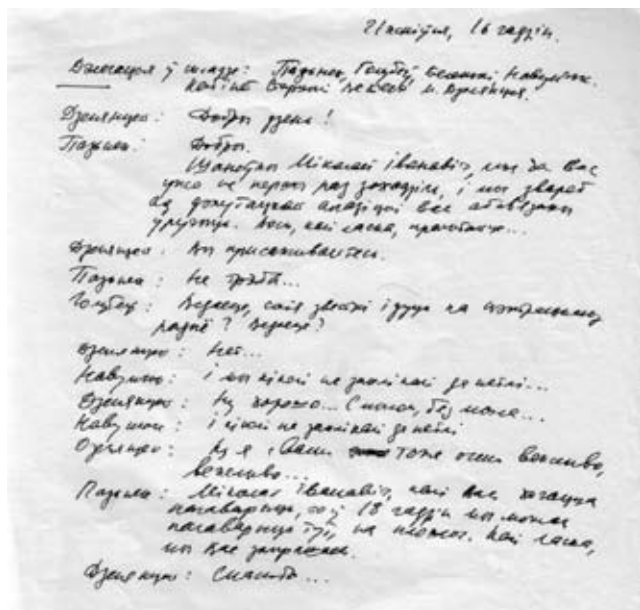 21 жніўня, 16 гадзін.
Дэлегацыя ў складзе: Пазьняк, Голубеў, Беленькі, Навумчык.
М. Дземянцея.
Дземянцей: Добры дзень!
Пазьняк: Добры.
Шаноўны Мікалай Іванавіч, мы да Вас
ужо не першы раз заходзім, і мы зварот
ад дэпутацкай апазіцыі Вас абавязаны
уручыць. Вось, калі ласка, прачытайце...
Дземянцей: Вы присаживайтесь.
Пазьняк: Не трэба...
Голубеў: Ведаеце, якія звесткі ідуць па цэнтральнаму
радыё? Ведаеце?
Дземянцей: Нет...
Навумчык: І мы ніколі не заклікалі
Дземянцей: Ну хорошо... С может, без может...
Навумчык: І ніколі не заклікалі
Дземянцей: Ну я с Вами тоже очень вежливо,
вежливо...
Пазьняк: Мікалай Іванавіч, калі Вы хочаце
пагаварыць, то ў 18 гадзін мы можам
пагаварыць тут, на плошчы. Калі ласка,
мы Вас запрашаем.
Дземянцей: Спасибо...